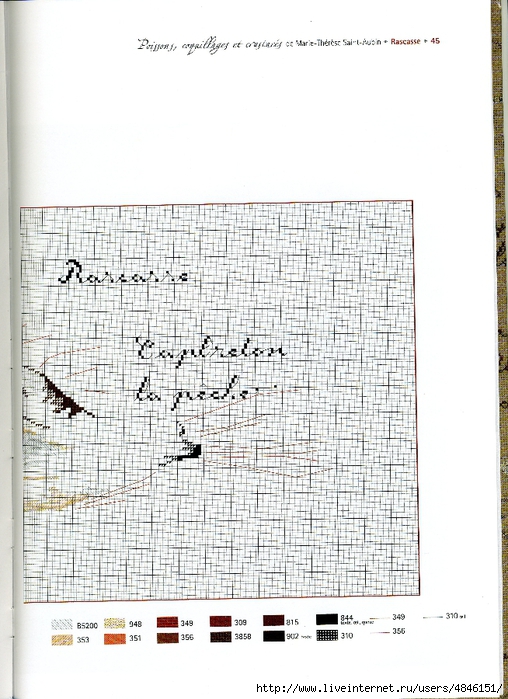 Poissons, coquillages et crustacés de Marie-Thérèse Saint-Aubin • Rascasse • 45
Rascasse
Capbreton
la pêche
B5200 948 349 309 815 844 349 310
353 351 356 3858 902 310 356
http://www.liveinternet.ru/users/4846151/